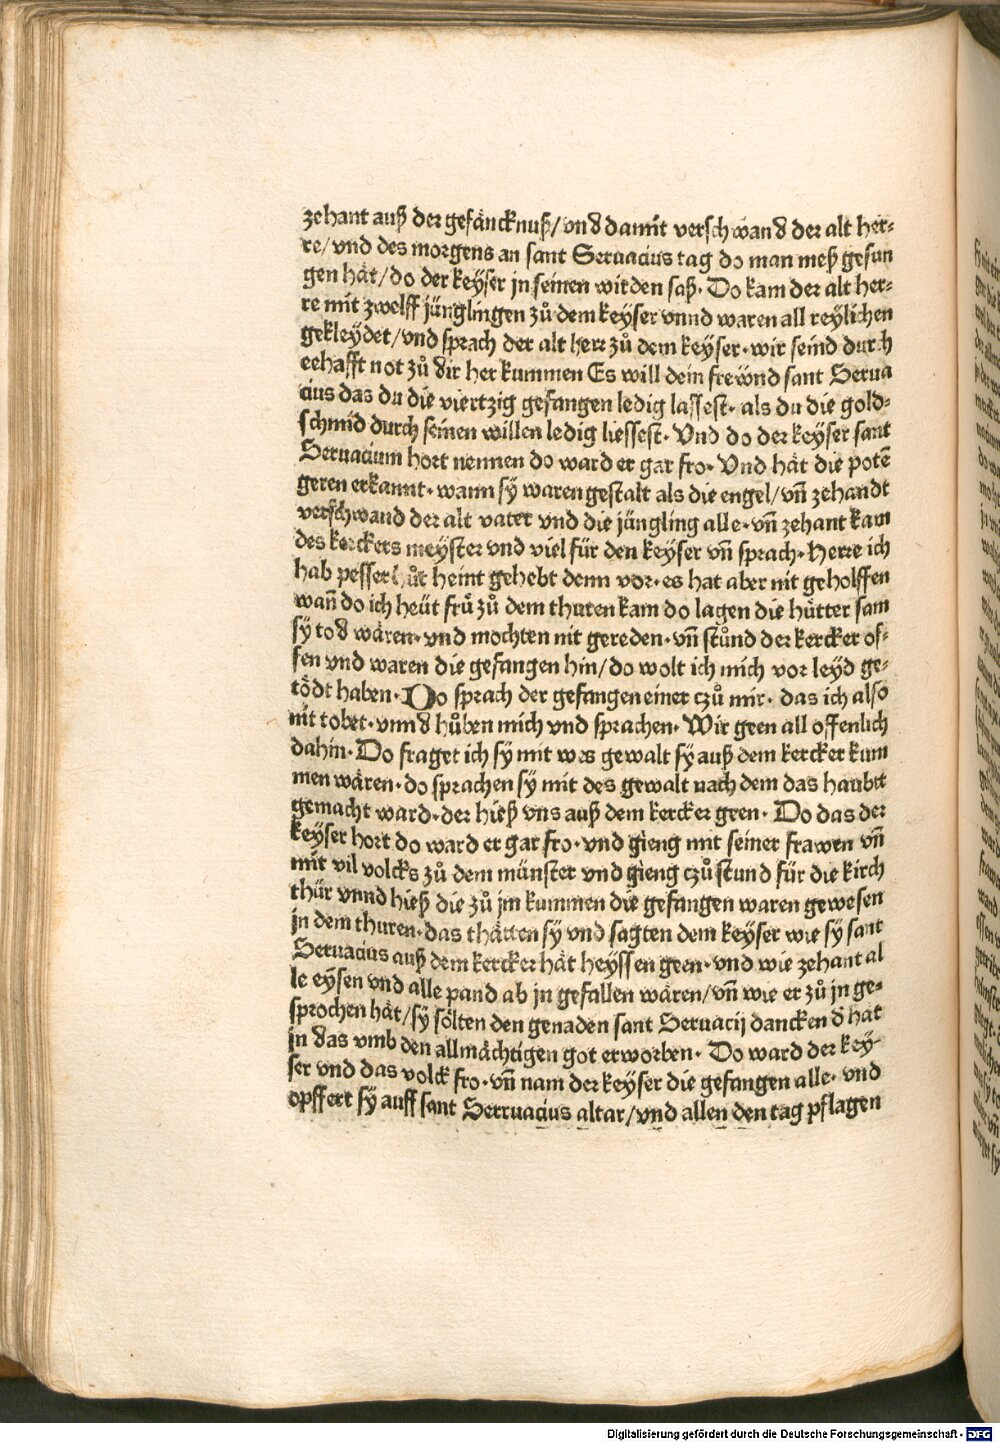 zehant auß der gefäncknuß/vnd damit verschwand der alt her⸗
re/vnd des morgens an sant Seruacius tag do man meß gesun
gen hät/do der keÿser jn seinen wirden saß. Do kam der alt her⸗
re mit zwelff jünglingen zů dem keÿser vnnd waren all reÿlichen
gekleÿdet/vnd sprach der alt herr zů dem keÿser. wir seind durch
eehafft not zů dir her kummen Es will dein freẅnd sant Serua
cius das du die viertzig gefangen ledig lassest. als du die gold⸗
schmid durch seinen willen ledig liessest. Vnd do der keÿser sant
Seruacium hort nennen do ward er gar fro. Vnd hät die potē
geren erkannt. wann sÿ waren gestalt als die engel/vn̄ zehandt
verschwand der alt vater vnd die jüngling alle. vn̄ zehant kam
des kerckers meÿster vnd viel für den keÿser vn̄ sprach. Herre ich
hab pesser hůt heint gehebt denn vor. es hat aber nit geholffen
wan̄ do ich heüt frů zů dem thuren kam do lagen die hütter sam
sÿ tod wären. vnd mochten nit gereden. vn̄ stůnd der kercker of⸗
fen vnd waren die gefangen hin/do wolt ich mich vor leÿd ge⸗
tödt haben. Do sprach der gefangen einer czů mir. das ich also
nit tobet. vnnd hůben mich vnd sprachen. Wir geen all offenlich
dahin. Do fraget ich sÿ mit was gewalt sÿ auß dem kercker kum
men wären. do sprachen sÿ mit des gewalt nach dem das haubtt
gemacht ward. der hieß vns auß dem kercker geen. Do das der
keÿser hort do ward er gar fro. vnd gieng mit seiner frawen vn̄
mit vil volcks zů dem münster vnd gieng czů stund für die kirch
thür vnnd hieß die zů jm kummen die gefangen waren gewesen
jn dem thuren. das thätten sÿ vnd sagten dem keÿser wie sÿ sant
Seruacius auß dem kercker hät heÿssen geen. vnd wie zehant al
le eÿsen vnd alle pand ab jn gefallen wären/vn̄ wie er zů jn ge⸗
sprochen hät/sÿ sölten den genaden sant Seruacij dancken d̄ hät
jn das vmb den allmächtigen got erworben. Do ward der keÿ⸗
ser vnd das volck fro. vn̄ nam der keÿser die gefangen alle. vnd
opffert sÿ auff sant Serruacius altar/vnd allen den tag pflagen
Digitalisierung gefördert durch die Deutsche Forschungsgemeinschaft - DFG